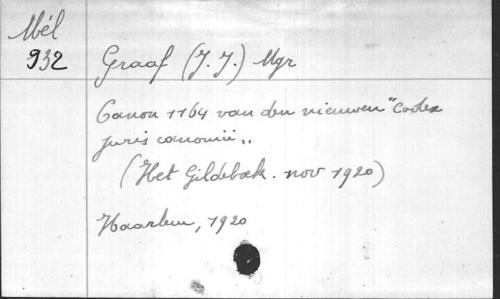 Mél
932
Graaf (J. J.) Mgr
Canon 1164 van den nieuwen "Codex
juris canonici„.
(Het Gildeboek. nov 1920)
Haarlem, 1920